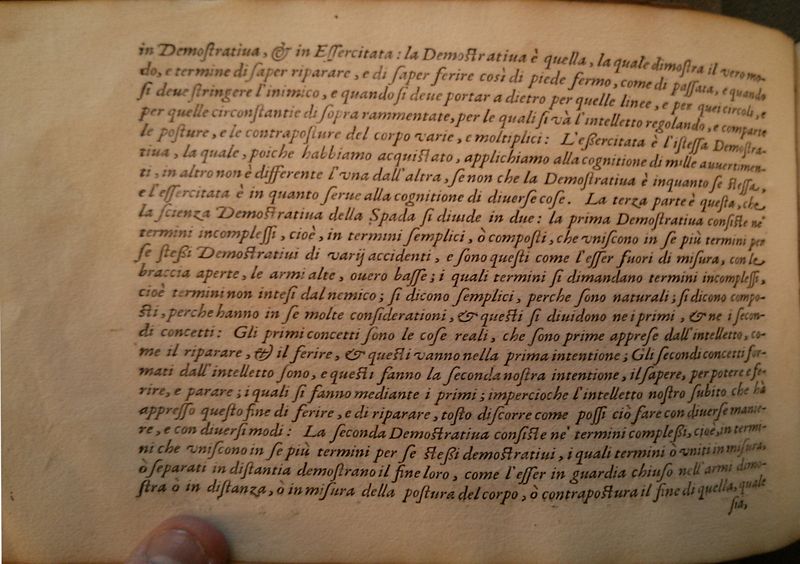 in Demoſtratiua, & in Eſſercitata: la Demoſtratiua è quella, la quale dimoſtra il vero mo-
do, e termine di ſaper riparare, e di ſaper ferire così di piede fermo, come di paſſata, e quando
ſi deue ſtringere l'inimico, e quando ſi deue portar a dietro per quelle linee, e per quei circoli, e
per quelle circonſtantie di ſopra rammentate, per le quali ſi và l'intelletto regolando, e comparte
le poſture, e le contrapoſture del corpo varie, e moltiplici: L'eßercitata è l'iſteſſa Demoſtra-
tiua, la quale, poiche habbiamo acquiſtato, applichiamo alla cognitione di mille auuertimen-
ti, in altro non è differente l'vna dall'altra, ſe non che la Demoſtratiua è inquanto ſe ſteſſa,
e l'eſſercitata è in quanto ſerue alla cognitione di diuerſe coſe. La terza parte è queſta, che
la ſcienza Demoſtratiua della Spada ſi diuide in due: la prima Demoſtratiua conſiſte ne'
termini incompleſſi, cioè, in termini ſemplici, ò compoſti, che vniſcono in ſe più termini per
ſe ſteßi Demoſtratiui di varij accidenti, e ſono queſti come l'eſſer fuori di miſura, con le
braccia aperte, le armi alte, ouero baſſe; i quali termini ſi dimandano termini incompleſſi,
cioè termini non inteſi dal nemico; ſi dicono ſemplici, perche ſono naturali; ſi dicono compo-
ſti, perche hanno in ſe molte conſiderationi, & queſti ſi diuidono ne i primi, & ne i ſecon-
di concetti: Gli primi concetti ſono le coſe reali, che ſono prime appreſe dall'intelletto, co-
me il riparare, & il ferire, & queſti vanno nella prima intentione; Gli ſecondi concetti for-
mati dall'intelletto ſono, e queſti fanno la ſeconda noſtra intentione, il ſapere, per potere e fe-
rire, e parare; i quali ſi fanno mediante i primi; impercioche l'intelletto noſtro ſubito che hà
appreſſo queſto fine di ferire, e di riparare, toſto diſcorre come poſſi ciò fare con diuerſe manie-
re, e con diuerſi modi: La ſeconda Demoſtratiua conſiſte ne' termini compleßi, cioè, in termi-
ni che vniſcono in ſe più termini per ſe ſteßi demoſtratiui, i quali termini ò vniti in miſura,
ò ſeparati in diſtantia demoſtrano il fine loro, come l'eſſer in guardia chiuſo nell'armi dimo-
ſtra ò in diſtanza, ò in miſura della poſtura del corpo, ò contrapoſtura il fine di quella, quale
ſia,